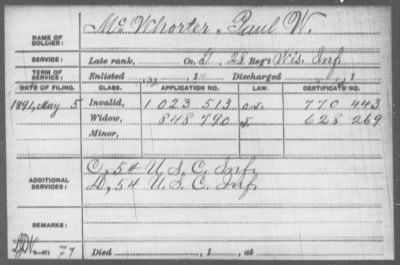 NAME OF SOLDIER: McWhorter, Paul W.
SERVICE: Late rank, Co. I, 28 Reg't Wis. Inf.
TERM OF SERVICE: Enlisted , 1 Discharged , 1
DATE OF FILING. CLASS. APPLICATION NO. LAW. CERTIFICATE NO.
1891, May 5 Invalid, 1 023 513 770 443
Widow, 848 790 628 269
Minor,
ADDITIONAL SERVICES: C, 54 U. S. C. Inf.
D, 54 U. S. C. Inf.
REMARKS:
Died , 1 , at